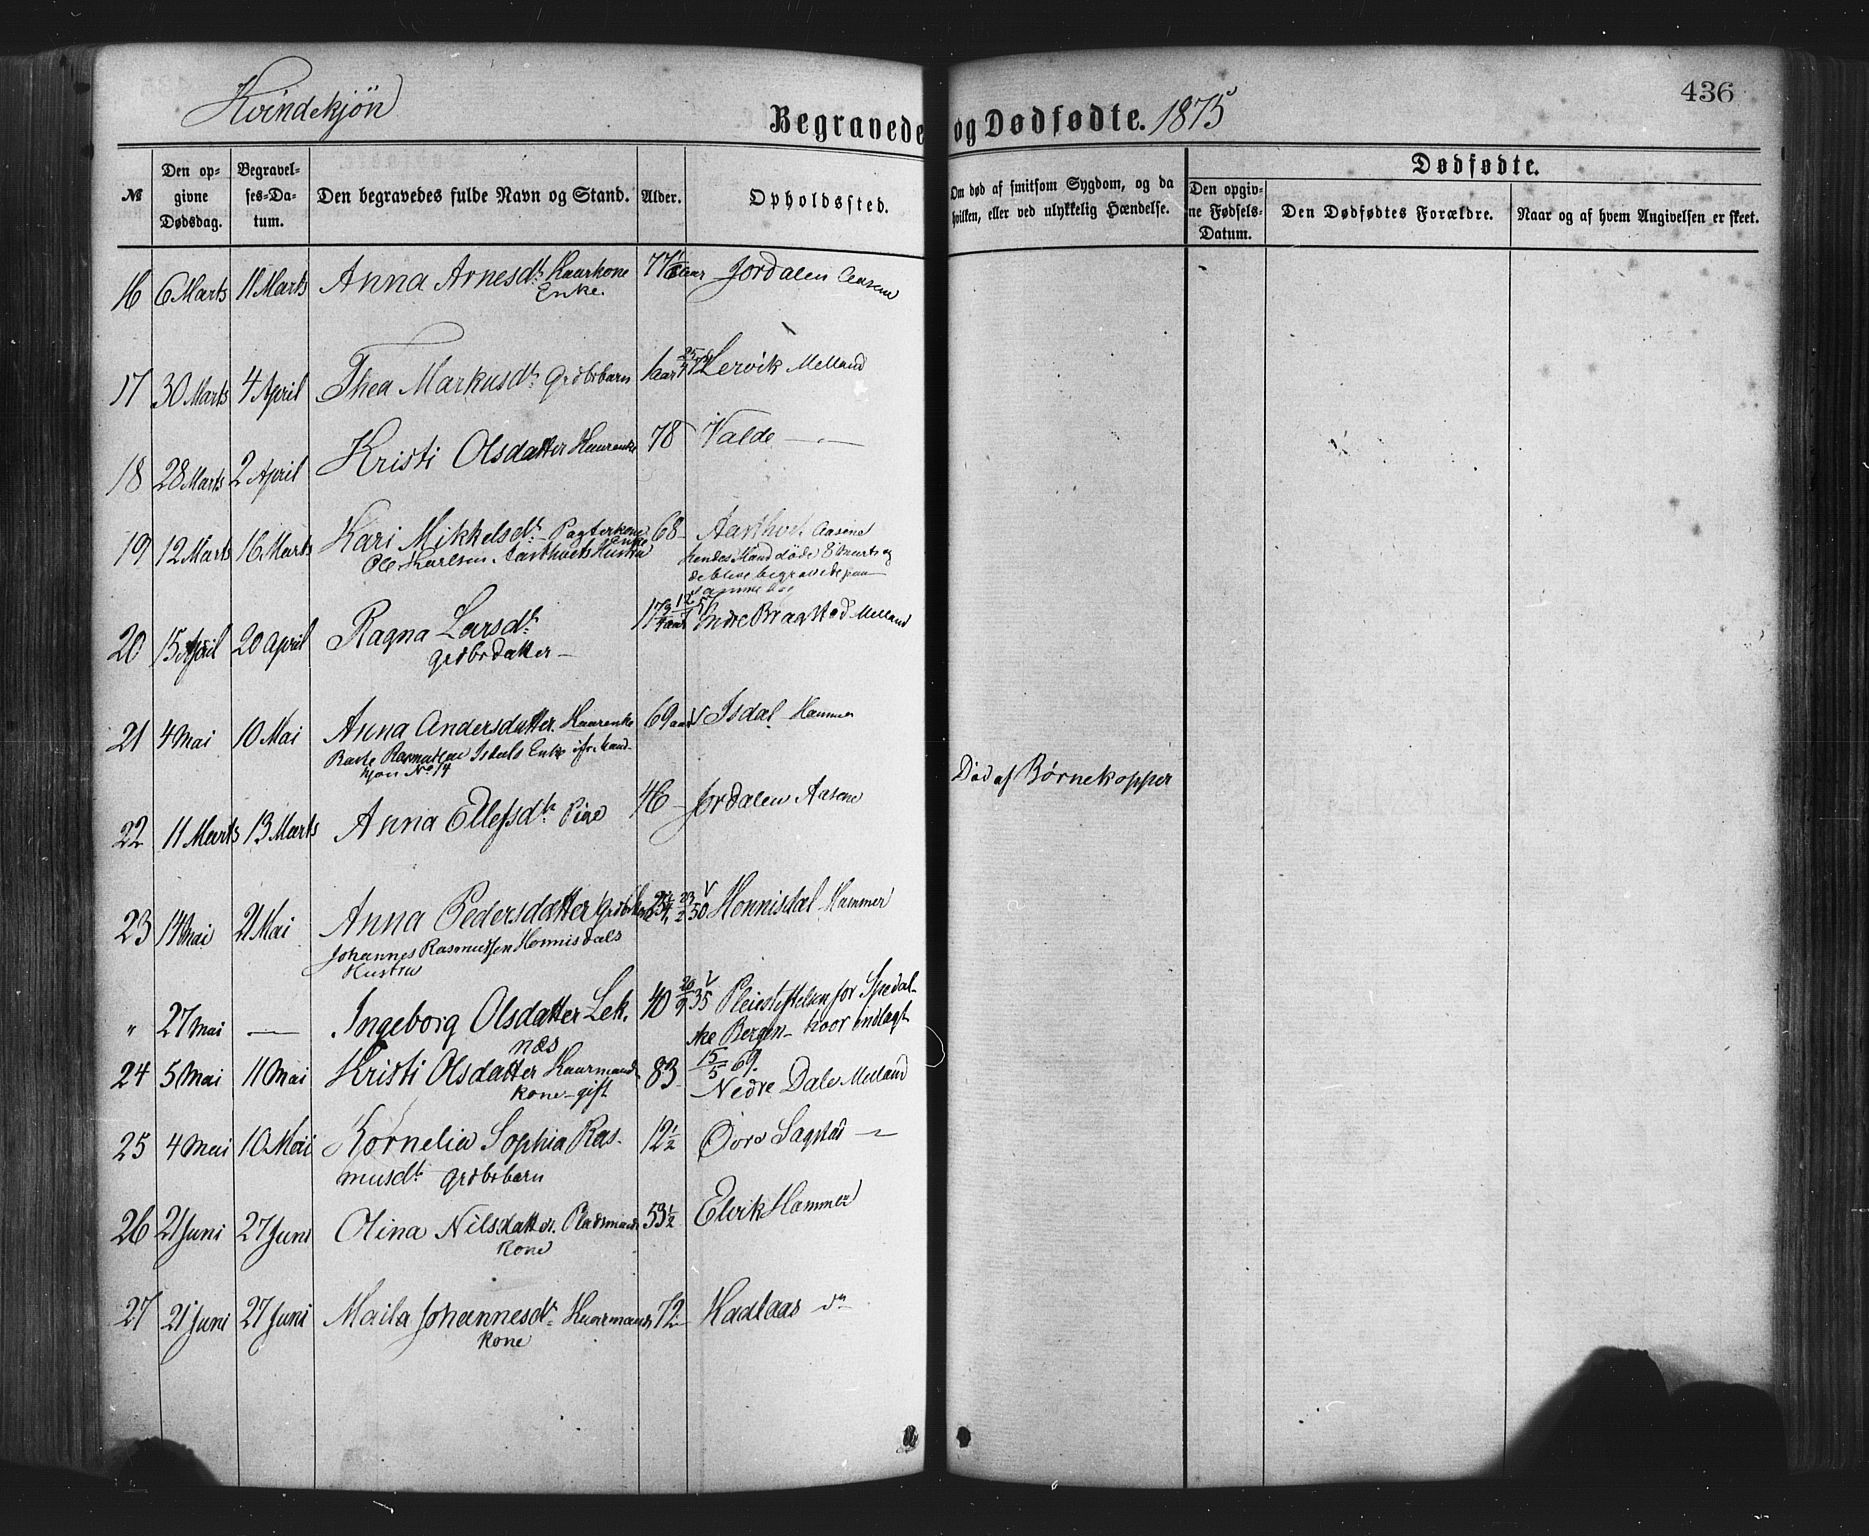 Kvindekjøn
Begravede og Dødfødte. 1875
436
№
Den opgivne Dødsdag.
Begravelses-Datum.
Den begravedes fulde Navn og Stand.
Alder.
Opholdssted.
Om død af smitsom Sygdom, og da hvilken, eller ved ulykkelig Hændelse.
Dødfødte.
Den opgivne Fødsels-Datum.
Den Dødfødtes Forældre.
Naar og af hvem Angivelsen er skeet.
16 6 Marts 11 Marts Anna Arnesdtr Kaarkone 77 Jordalen Aasene
Enke.
17 30 Marts 4 April Thea Markusdtr Grdbrbarn Lervik Melland
18 28 Marts 2 April Kristi Olsdatter Kaarenke 78 Valde —"—
19 12 Marts 16 Marts Kari Mikkelsdtr Pagterkone 68 Aasene
Enke
Ole Karlsen Hustru hendes Mand døde 8 Marts og
de bleve begravede paa
samme Dag
20 15 April 20 April Ragna Larsdtr 17 Indre Bragstad Melland
Grdbrdatter
21 4 Mai 10 Mai Anna Andersdatter Kaarenke 69 aar Isdal Hammer
Rasmussen Isdals Enke cfr. Mand-
kjøn No 14
22 11 Marts 13 Marts Anna Ellefsdtr Pige 46 Jordalen Aasene Død af Børnekopper
23 14 Mai 21 Mai Anna Pedersdatter 23/2 50 Honnisdal Hammer
Johannes Rasmussen Honnisdals
Hustru
" 27 Mai — Ingeborg Olsdatter Lek- 40 35 Pleiestiftelsen for Spedal-
næs ske Bergen hvor indlagt
15/5 69.
24 5 Mai 11 Mai Kristi Olsdatter Kaarmand- 83 Nedre Dale Melland
kone gift
25 4 Mai 10 Mai Kornelia Sophia Ras- 12 1/2 Øvre Sagstad —"—
musdtr Grdbrbarn
26 21 Juni 27 Juni Olina Nilsdatter Pladsmands 53 1/2 Elvik Hammer
kone
27 21 Juni 27 Juni Johannesdtr Kaarmands 72 Hadlaas do
kone